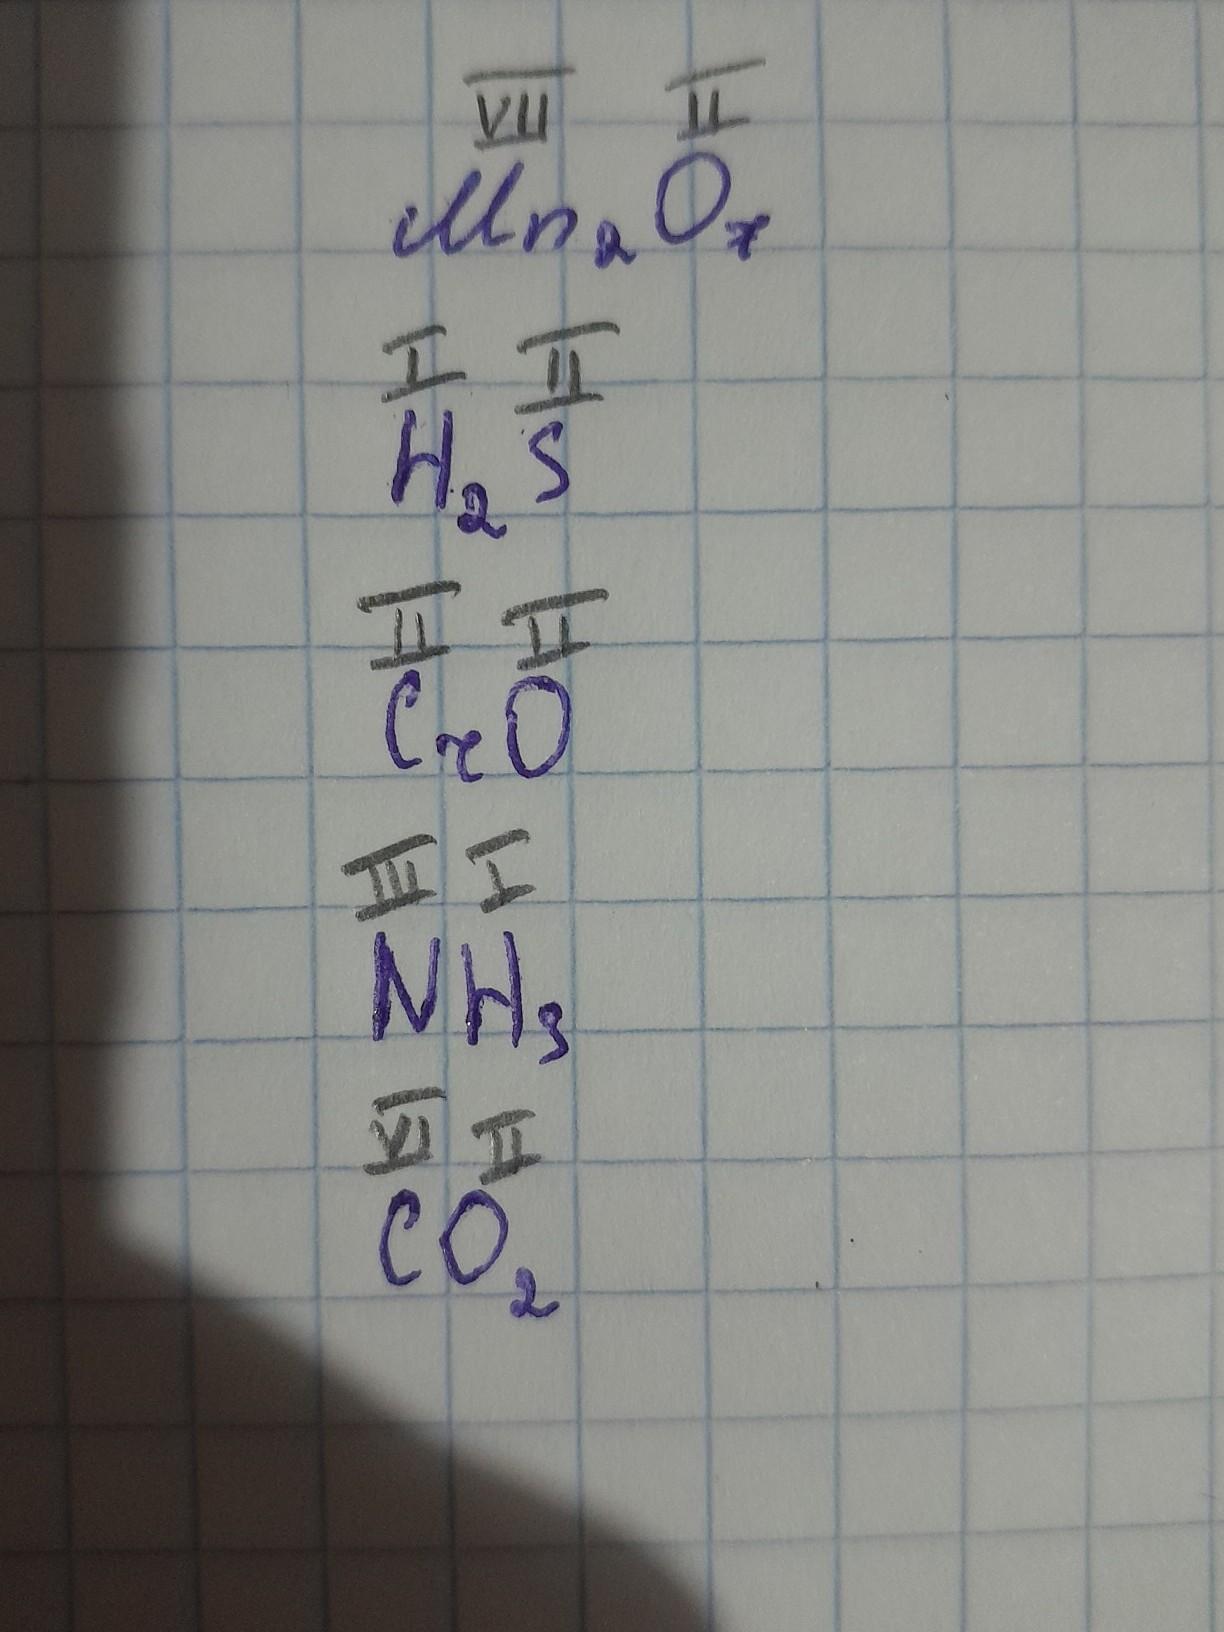 VII II
Mn₂O₇
I II
H₂S
II II
CrO
III I
NH₃
VI II
CO₂